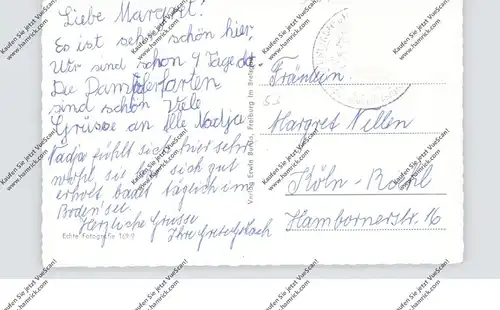 Liebe Margrit!
Es ist sehr schön hier
Wir sind schon 4 Tage da.
Die Dampferfarten
sind schön Viele
Grüsse an Alle Nadja
Nadja fühlt sich hier sehr
wohl sie hat sich gut
erholt badet täglich im
Boden'see.
Herzliche Grüsse
Ihre
Echte Fotografie
Verlag Erwin Burda, Freiburg im Breisgau
Fräulein
Margret Nellen
Köln-
Hambornerstr. 16
Kaufen Sie jetzt VueScan!
www.hamrick.com